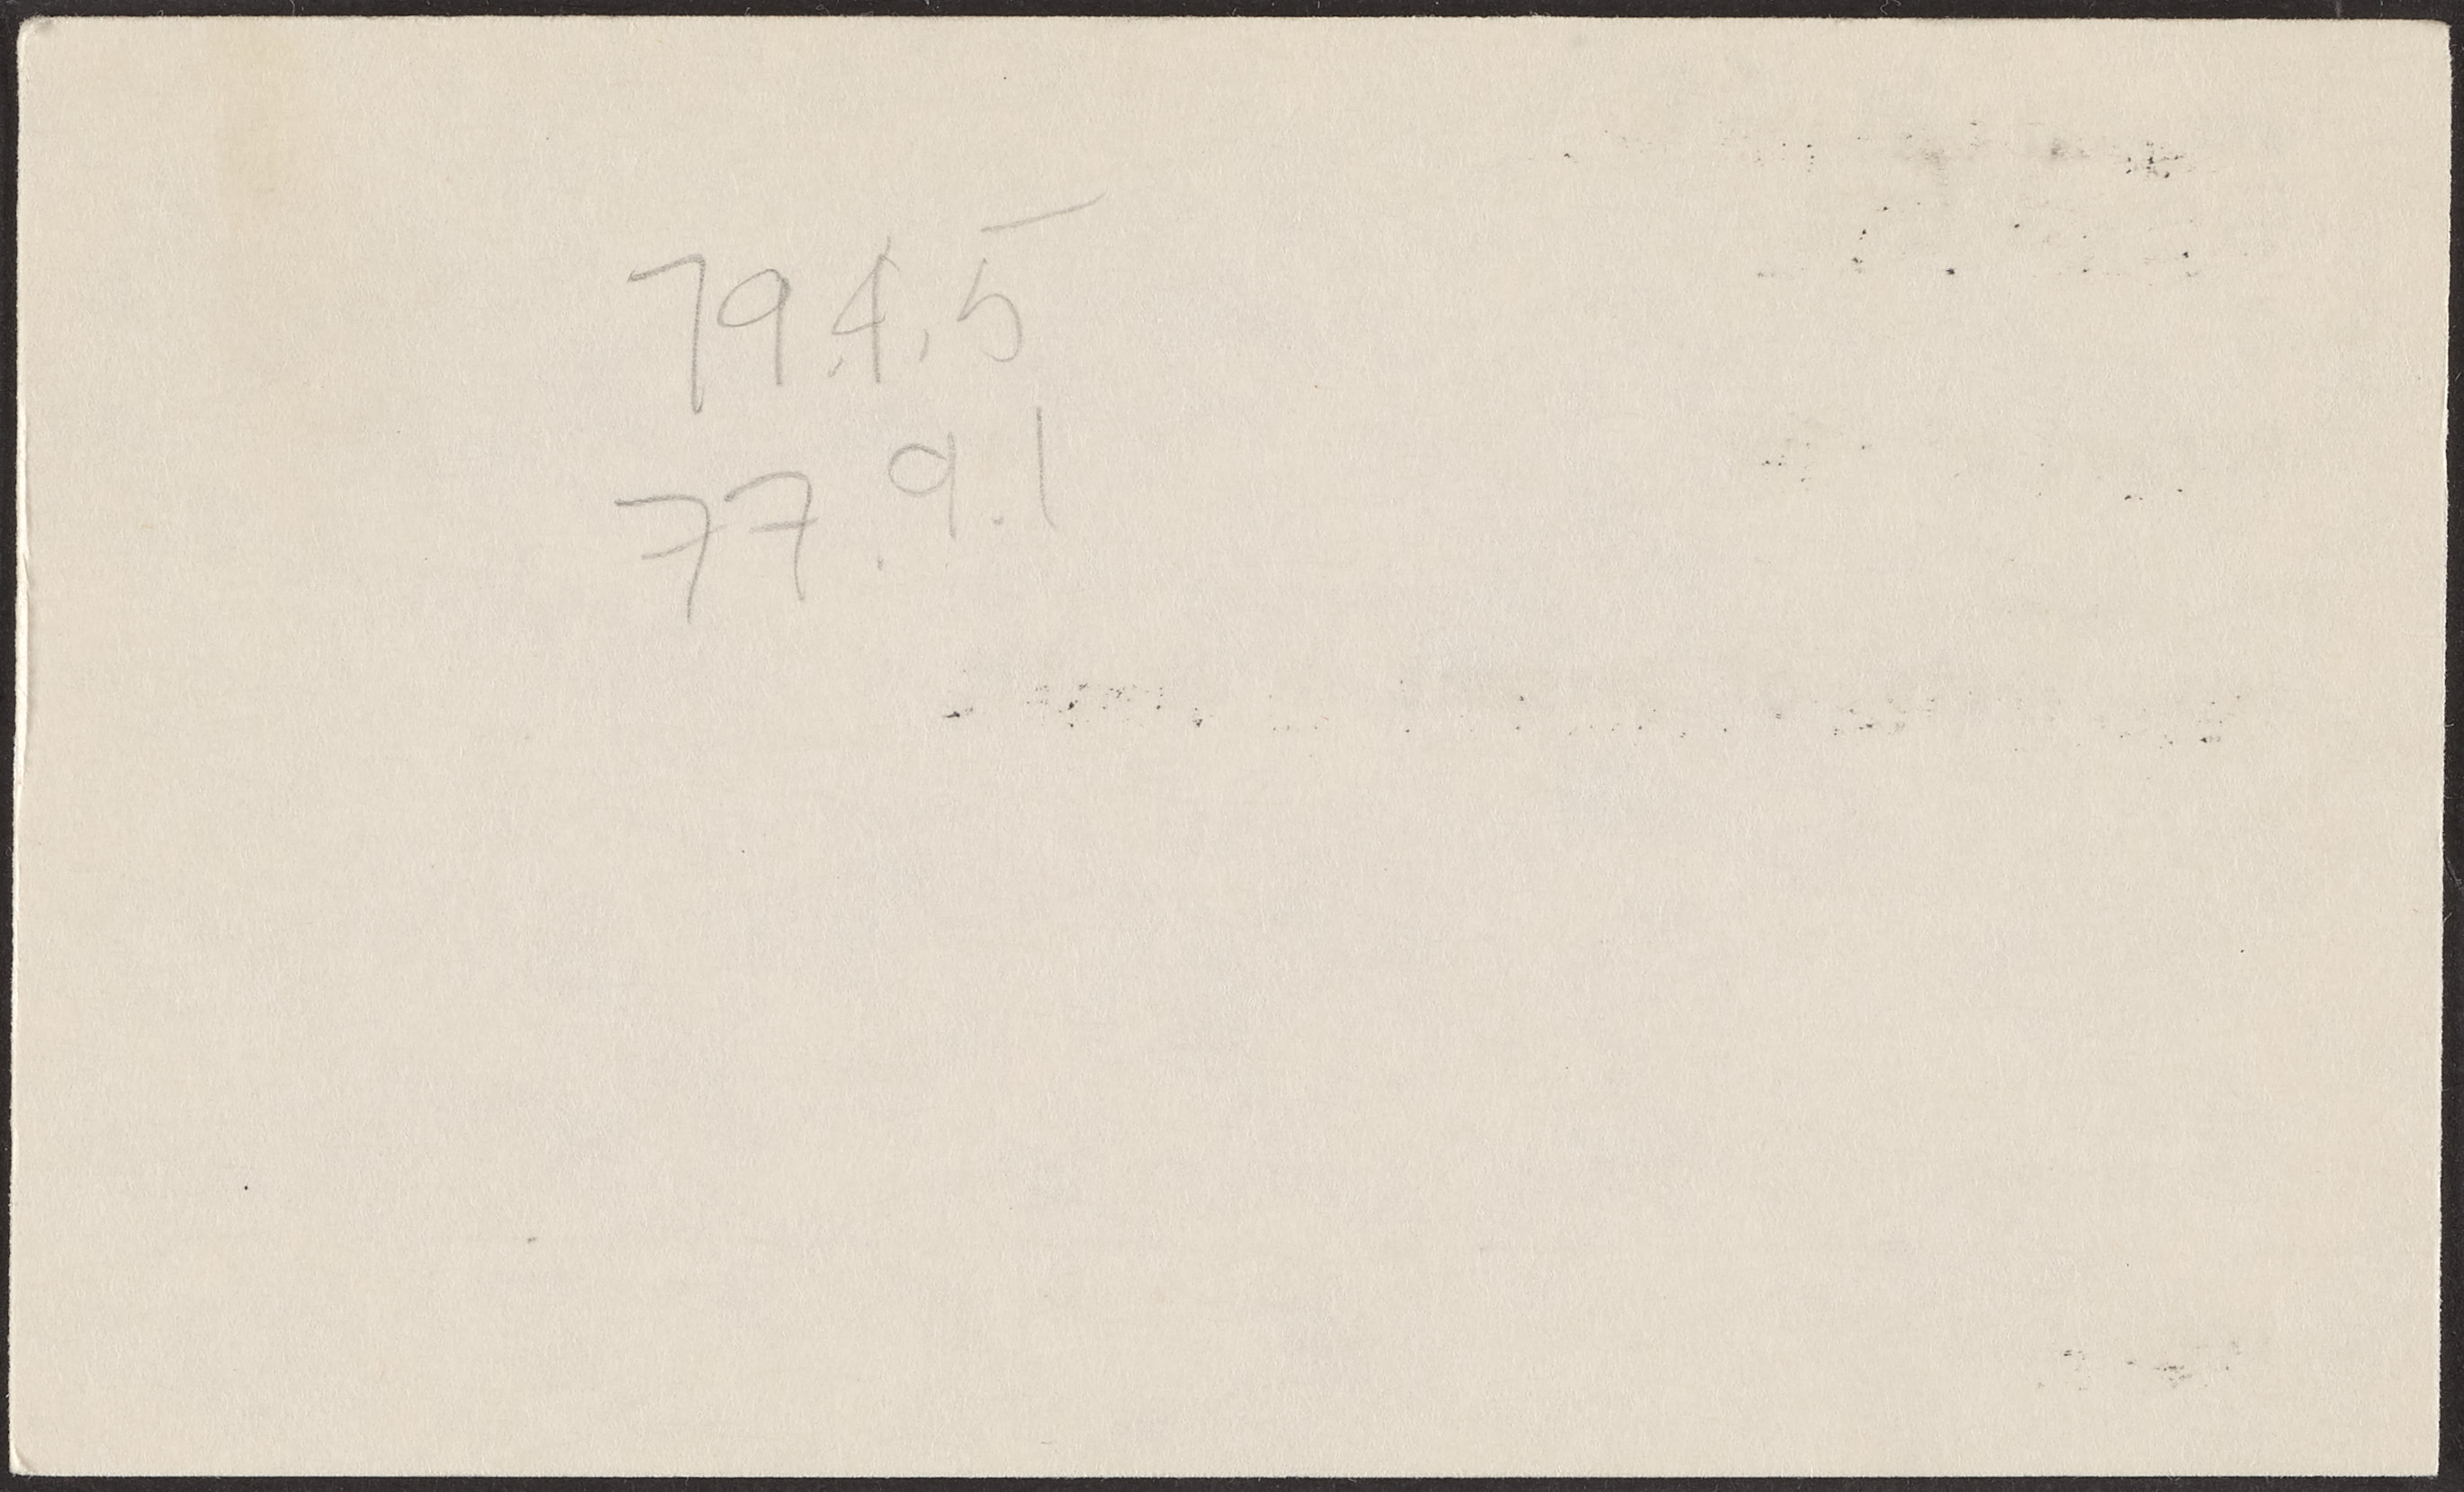 79.4.5
77.9.1